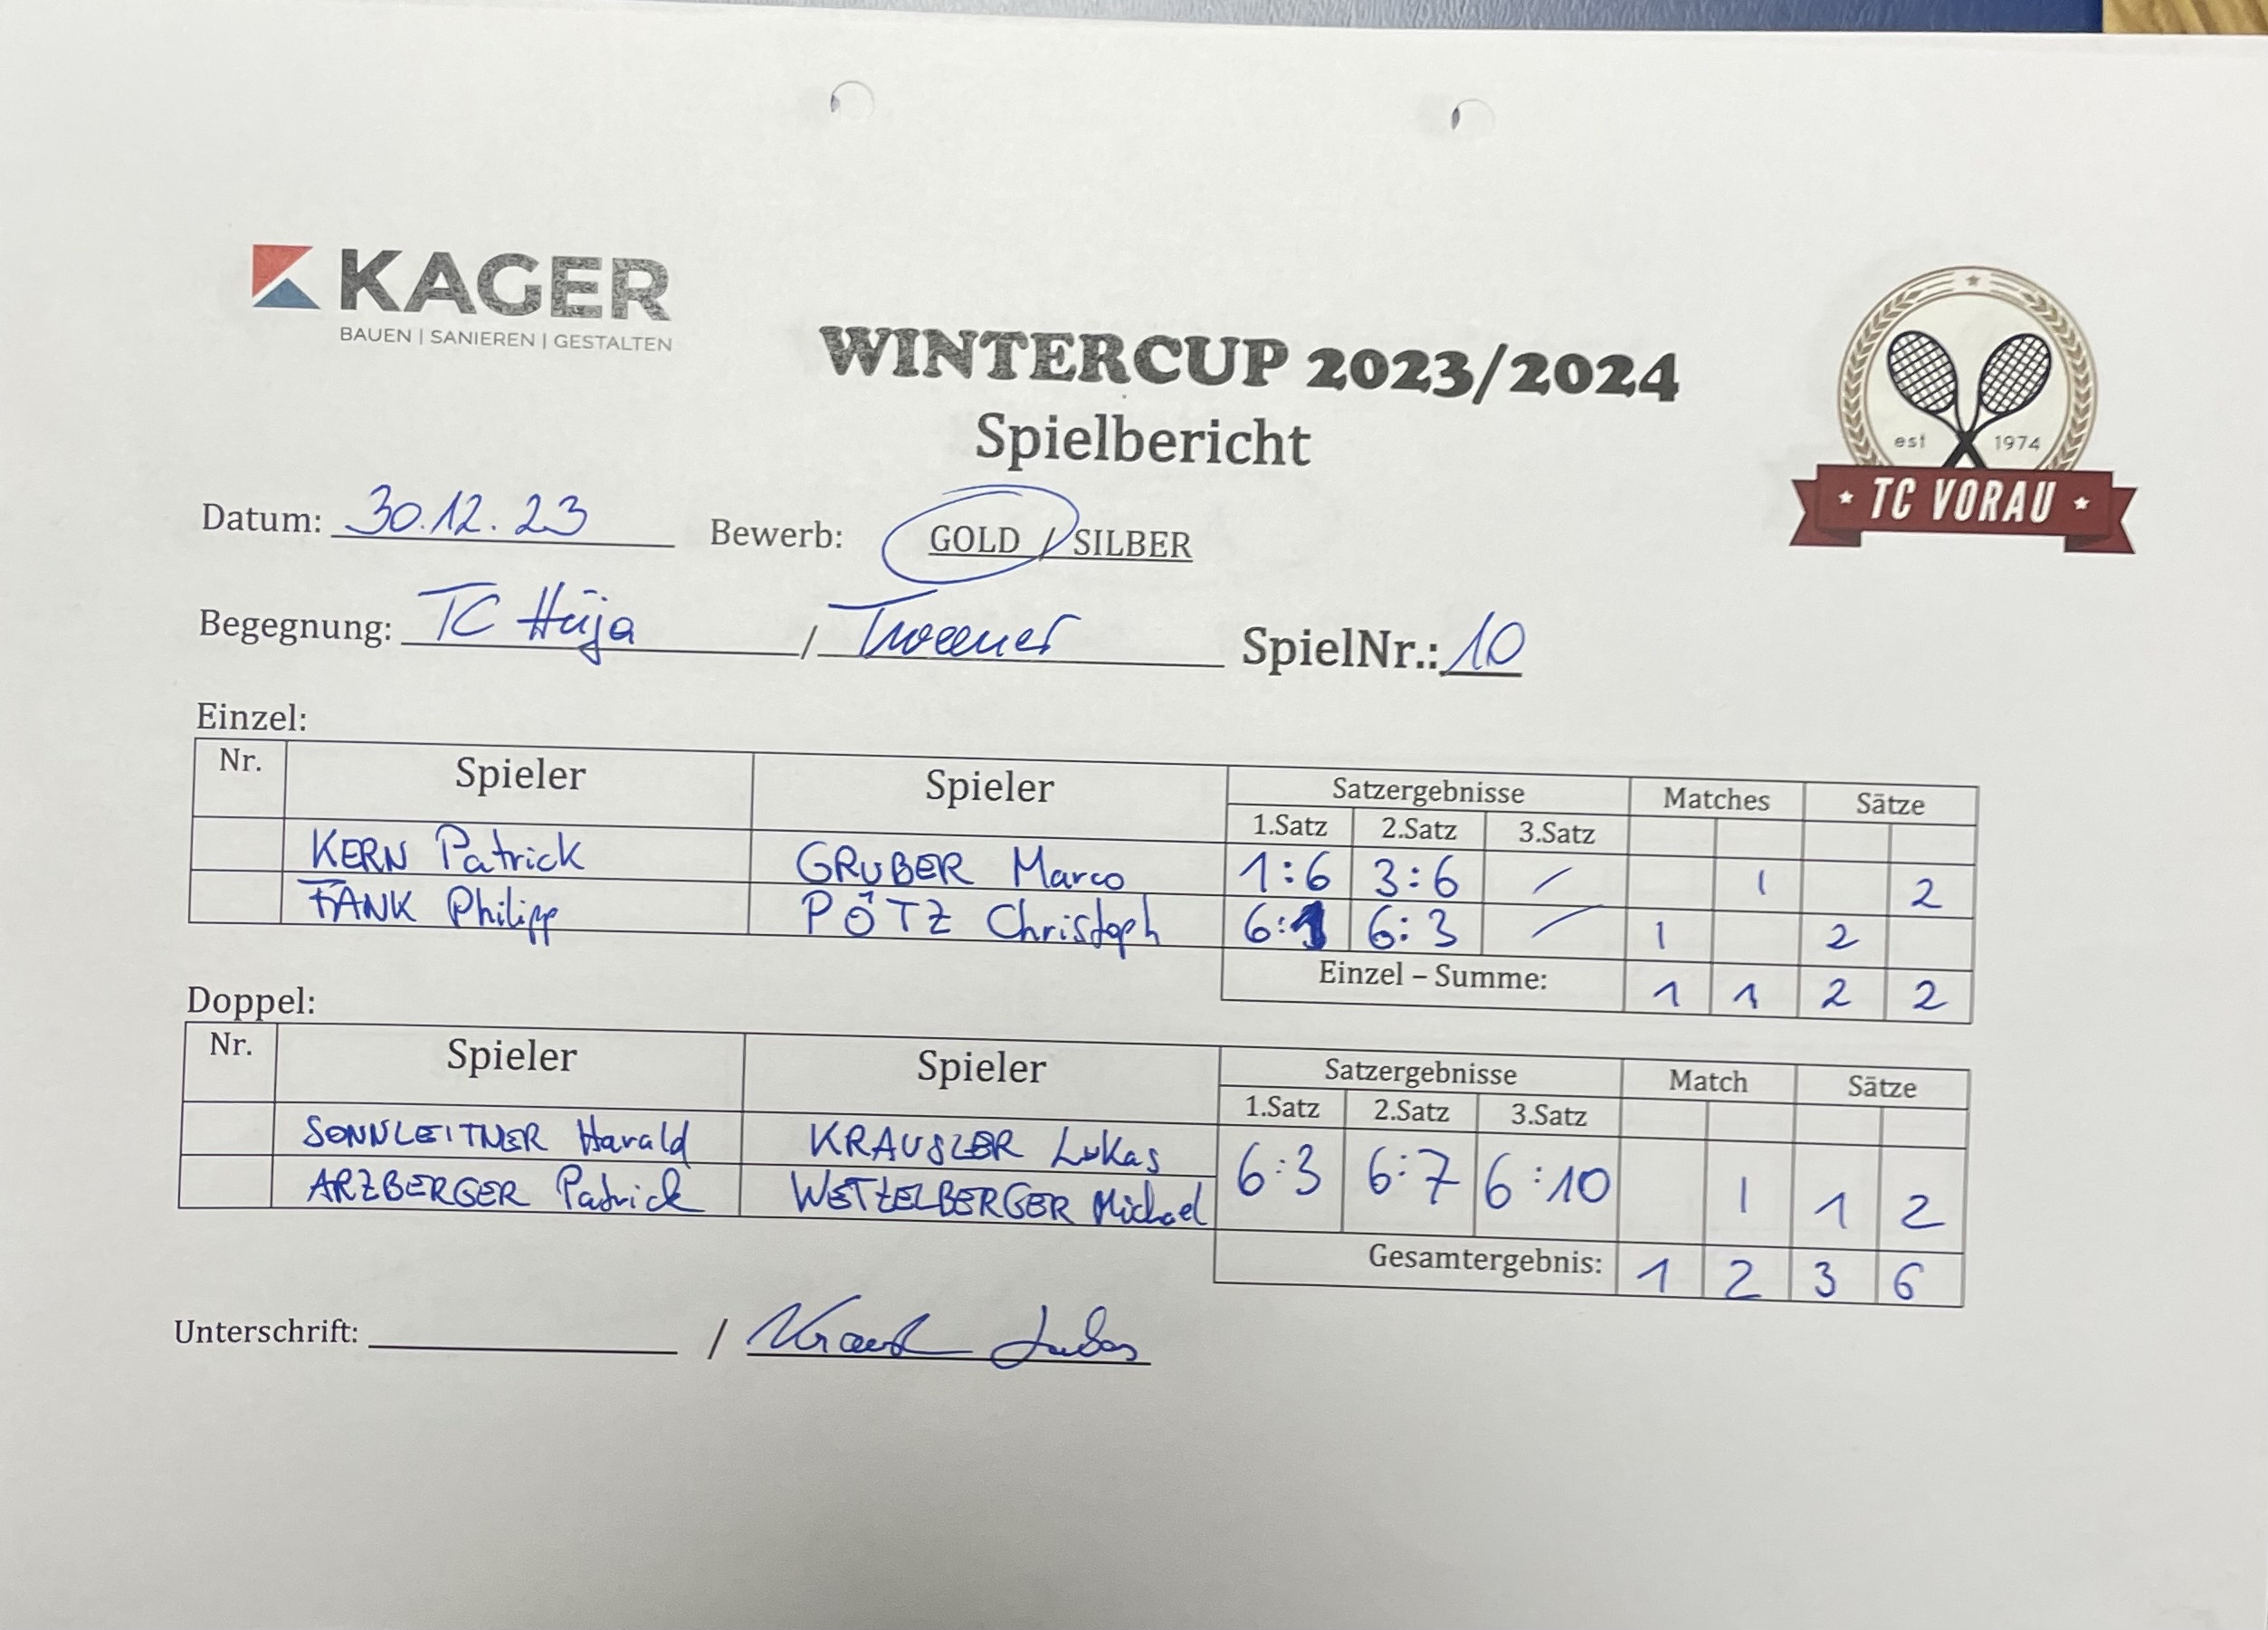 KAGER
BAUEN | SANIEREN | GESTALTEN
WINTERCUP 2023/2024
Spielbericht
est 1974
TC VORAU
Datum: 30.12.23 Bewerb: GOLD / SILBER
Begegnung: TC Hüja / Tweener SpielNr.: 10
Einzel:
Nr. Spieler Spieler Satzergebnisse Matches Sätze
1.Satz 2.Satz 3.Satz
KERN Patrick GRUBER Marco 1:6 3:6 / 1 2
FANK Philipp PÖTZ Christoph 6:1 6:3 / 1 2
Einzel – Summe: 1 1 2 2
Doppel:
Nr. Spieler Spieler Satzergebnisse Match Sätze
1.Satz 2.Satz 3.Satz
SONNLEITNER Harald KRAUSLER Lukas
6:3 6:7 6:10 1 1 2
ARZBERGER Patrick WETZELBERGER Michael
Gesamtergebnis: 1 2 3 6
Unterschrift: /